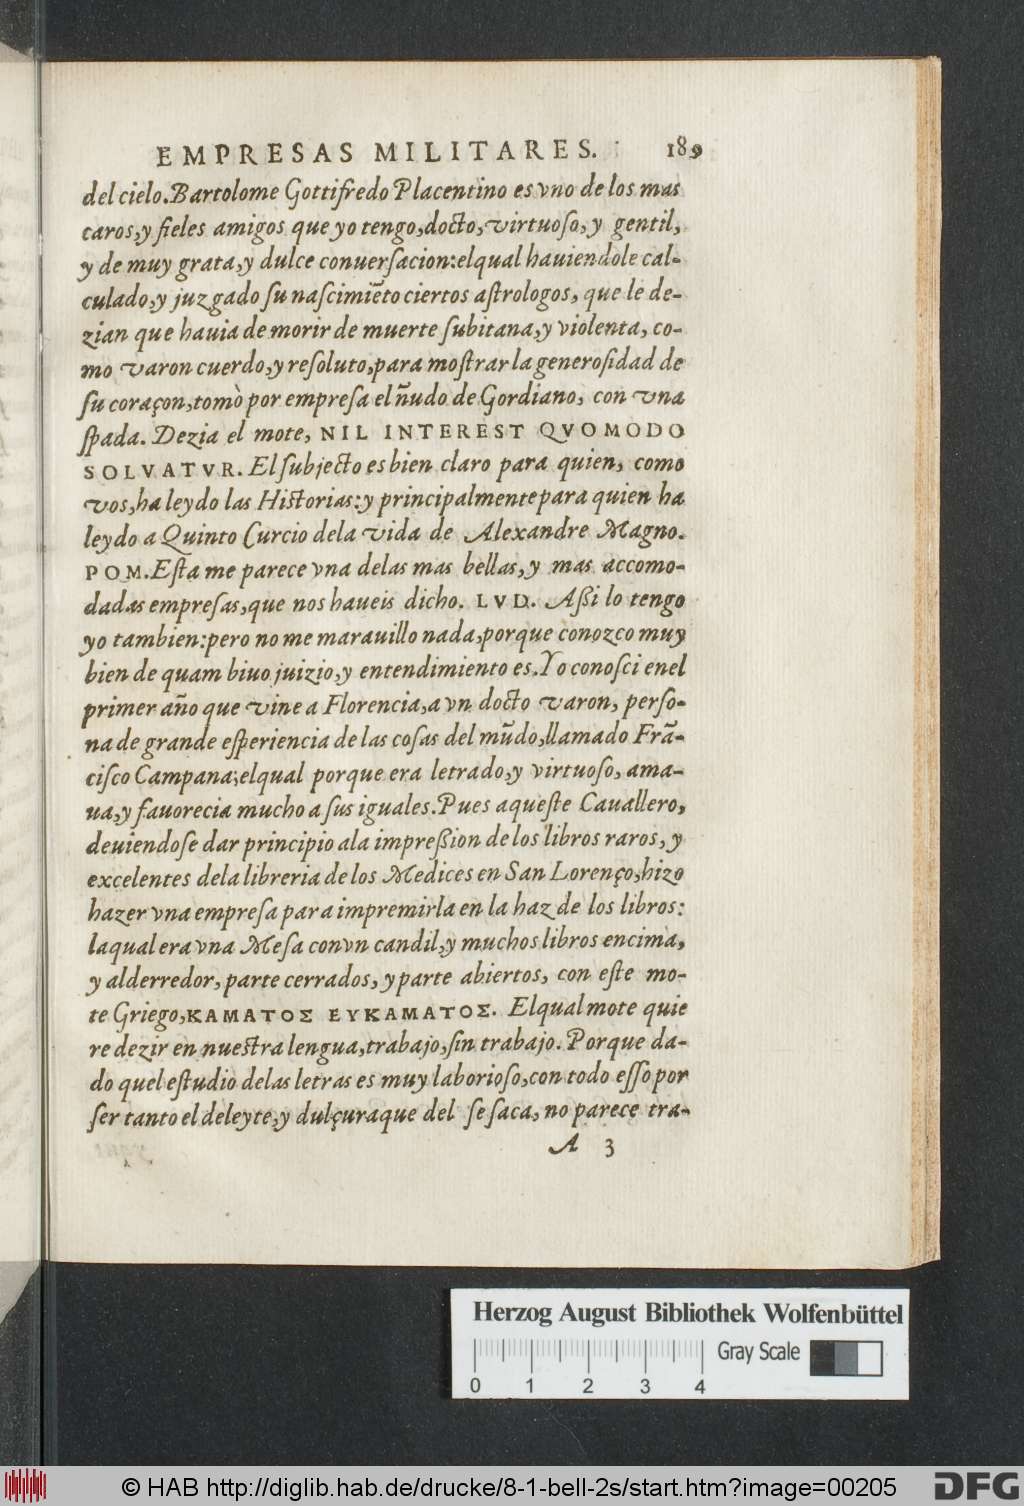 EMPRESAS MILITARES. 189
del cielo. Bartolome Gottifredo Placentino es vno de los mas
caros, y fieles amigos que yo tengo, docto, virtuoso, y gentil,
y de muy grata, y dulce conuersacion: elqual hauiendole cal-
culado, y juzgado su nascimiẽto ciertos astrologos, que le de-
zian que hauia de morir de muerte subitana, y violenta, co-
mo varon cuerdo, y resoluto, para mostrar la generosidad de
su coraçon, tomò por empresa el ñudo de Gordiano, con vna
spada. Dezia el mote, NIL INTEREST QVOMODO
SOLVATVR. El subjecto es bien claro para quien, como
vos, ha leydo las Historias: y principalmente para quien ha
leydo a Quinto Curcio dela vida de Alexandre Magno.
POM. Esta me parece vna delas mas bellas, y mas accomo-
dadas empresas, que nos haueis dicho. LVD. Aßi lo tengo
yo tambien: pero no me marauillo nada, porque conozco muy
bien de quam biuo juizio, y entendimiento es. Yo conosci enel
primer año que vine a Florencia, a vn docto varon, perso-
na de grande esperiencia de las cosas del mũdo, llamado Frã-
cisco Campana; elqual porque era letrado, y virtuoso, ama-
ua, y fauorecia mucho a sus iguales. Pues aqueste Cauallero,
deuiendose dar principio ala impreßion de los libros raros, y
excelentes dela libreria de los Medices en San Lorenço, hizo
hazer vna empresa para impremirla en la haz de los libros:
laqual era vna Mesa con vn candil, y muchos libros encima,
y alderredor, parte cerrados, y parte abiertos, con este mo-
te Griego, ΚΑΜΑΤΟΣ ΕΥΚΑΜΑΤΟΣ. Elqual mote quie
re dezir en nuestra lengua, trabajo, sin trabajo. Porque da-
do quel estudio delas letras es muy laborioso, con todo esso por
ser tanto el deleyte, y dulçura que del se saca, no parece tra-
A 3
Herzog August Bibliothek Wolfenbüttel
Gray Scale
0 1 2 3 4
© HAB http://diglib.hab.de/drucke/8-1-bell-2s/start.htm?image=00205 DFG